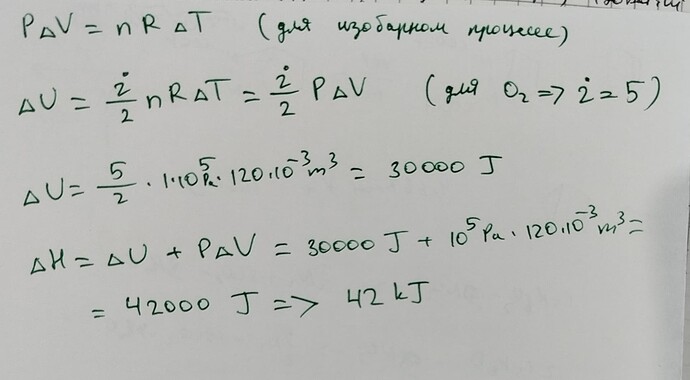 PΔV = nRΔT (для изобарном процессе)
ΔU = i/2 nRΔT = i/2 PΔV (для O₂ => i = 5)
ΔU = 5/2 · 1·10⁵ Pa · 120·10⁻³ m³ = 30000 J
ΔH = ΔU + PΔV = 30000 J + 10⁵ Pa · 120·10⁻³ m³ =
= 42000 J => 42 kJ